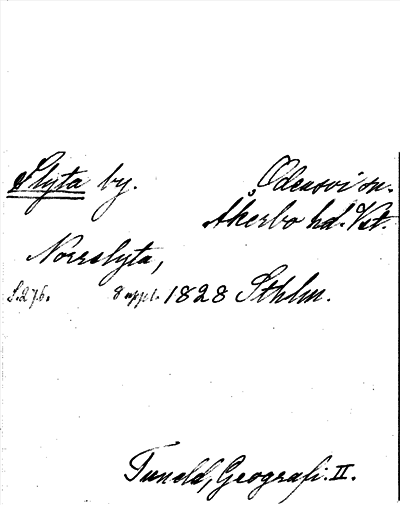 Slyta by. Odensvi sn.
Åkerbo hd. Vst.
Norrslyta,
S. 276. 8 uppl. 1828 Sthlm.
Tuneld, Geografi. II.